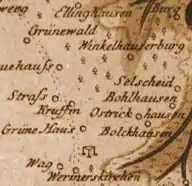 Ellinghausen
Burg
Grünewald
Winkelhauserburg
Selscheid
Strass
Bohlhausen
Kruffin
Ostrick
hausen
Grüne Haus
Bolckhausen
Wag
Wermerskirchen